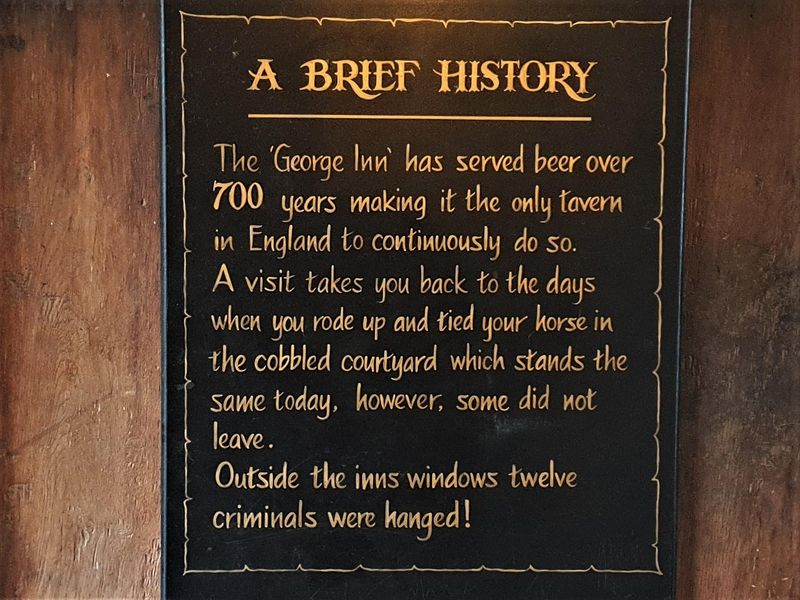 A BRIEF HISTORY
The 'George Inn' has served beer over
700 years making it the only tavern
in England to continuously do so.
A visit takes you back to the days
when you rode up and tied your horse in
the cobbled courtyard which stands the
same today, however, some did not
leave.
Outside the inns windows twelve
criminals were hanged!